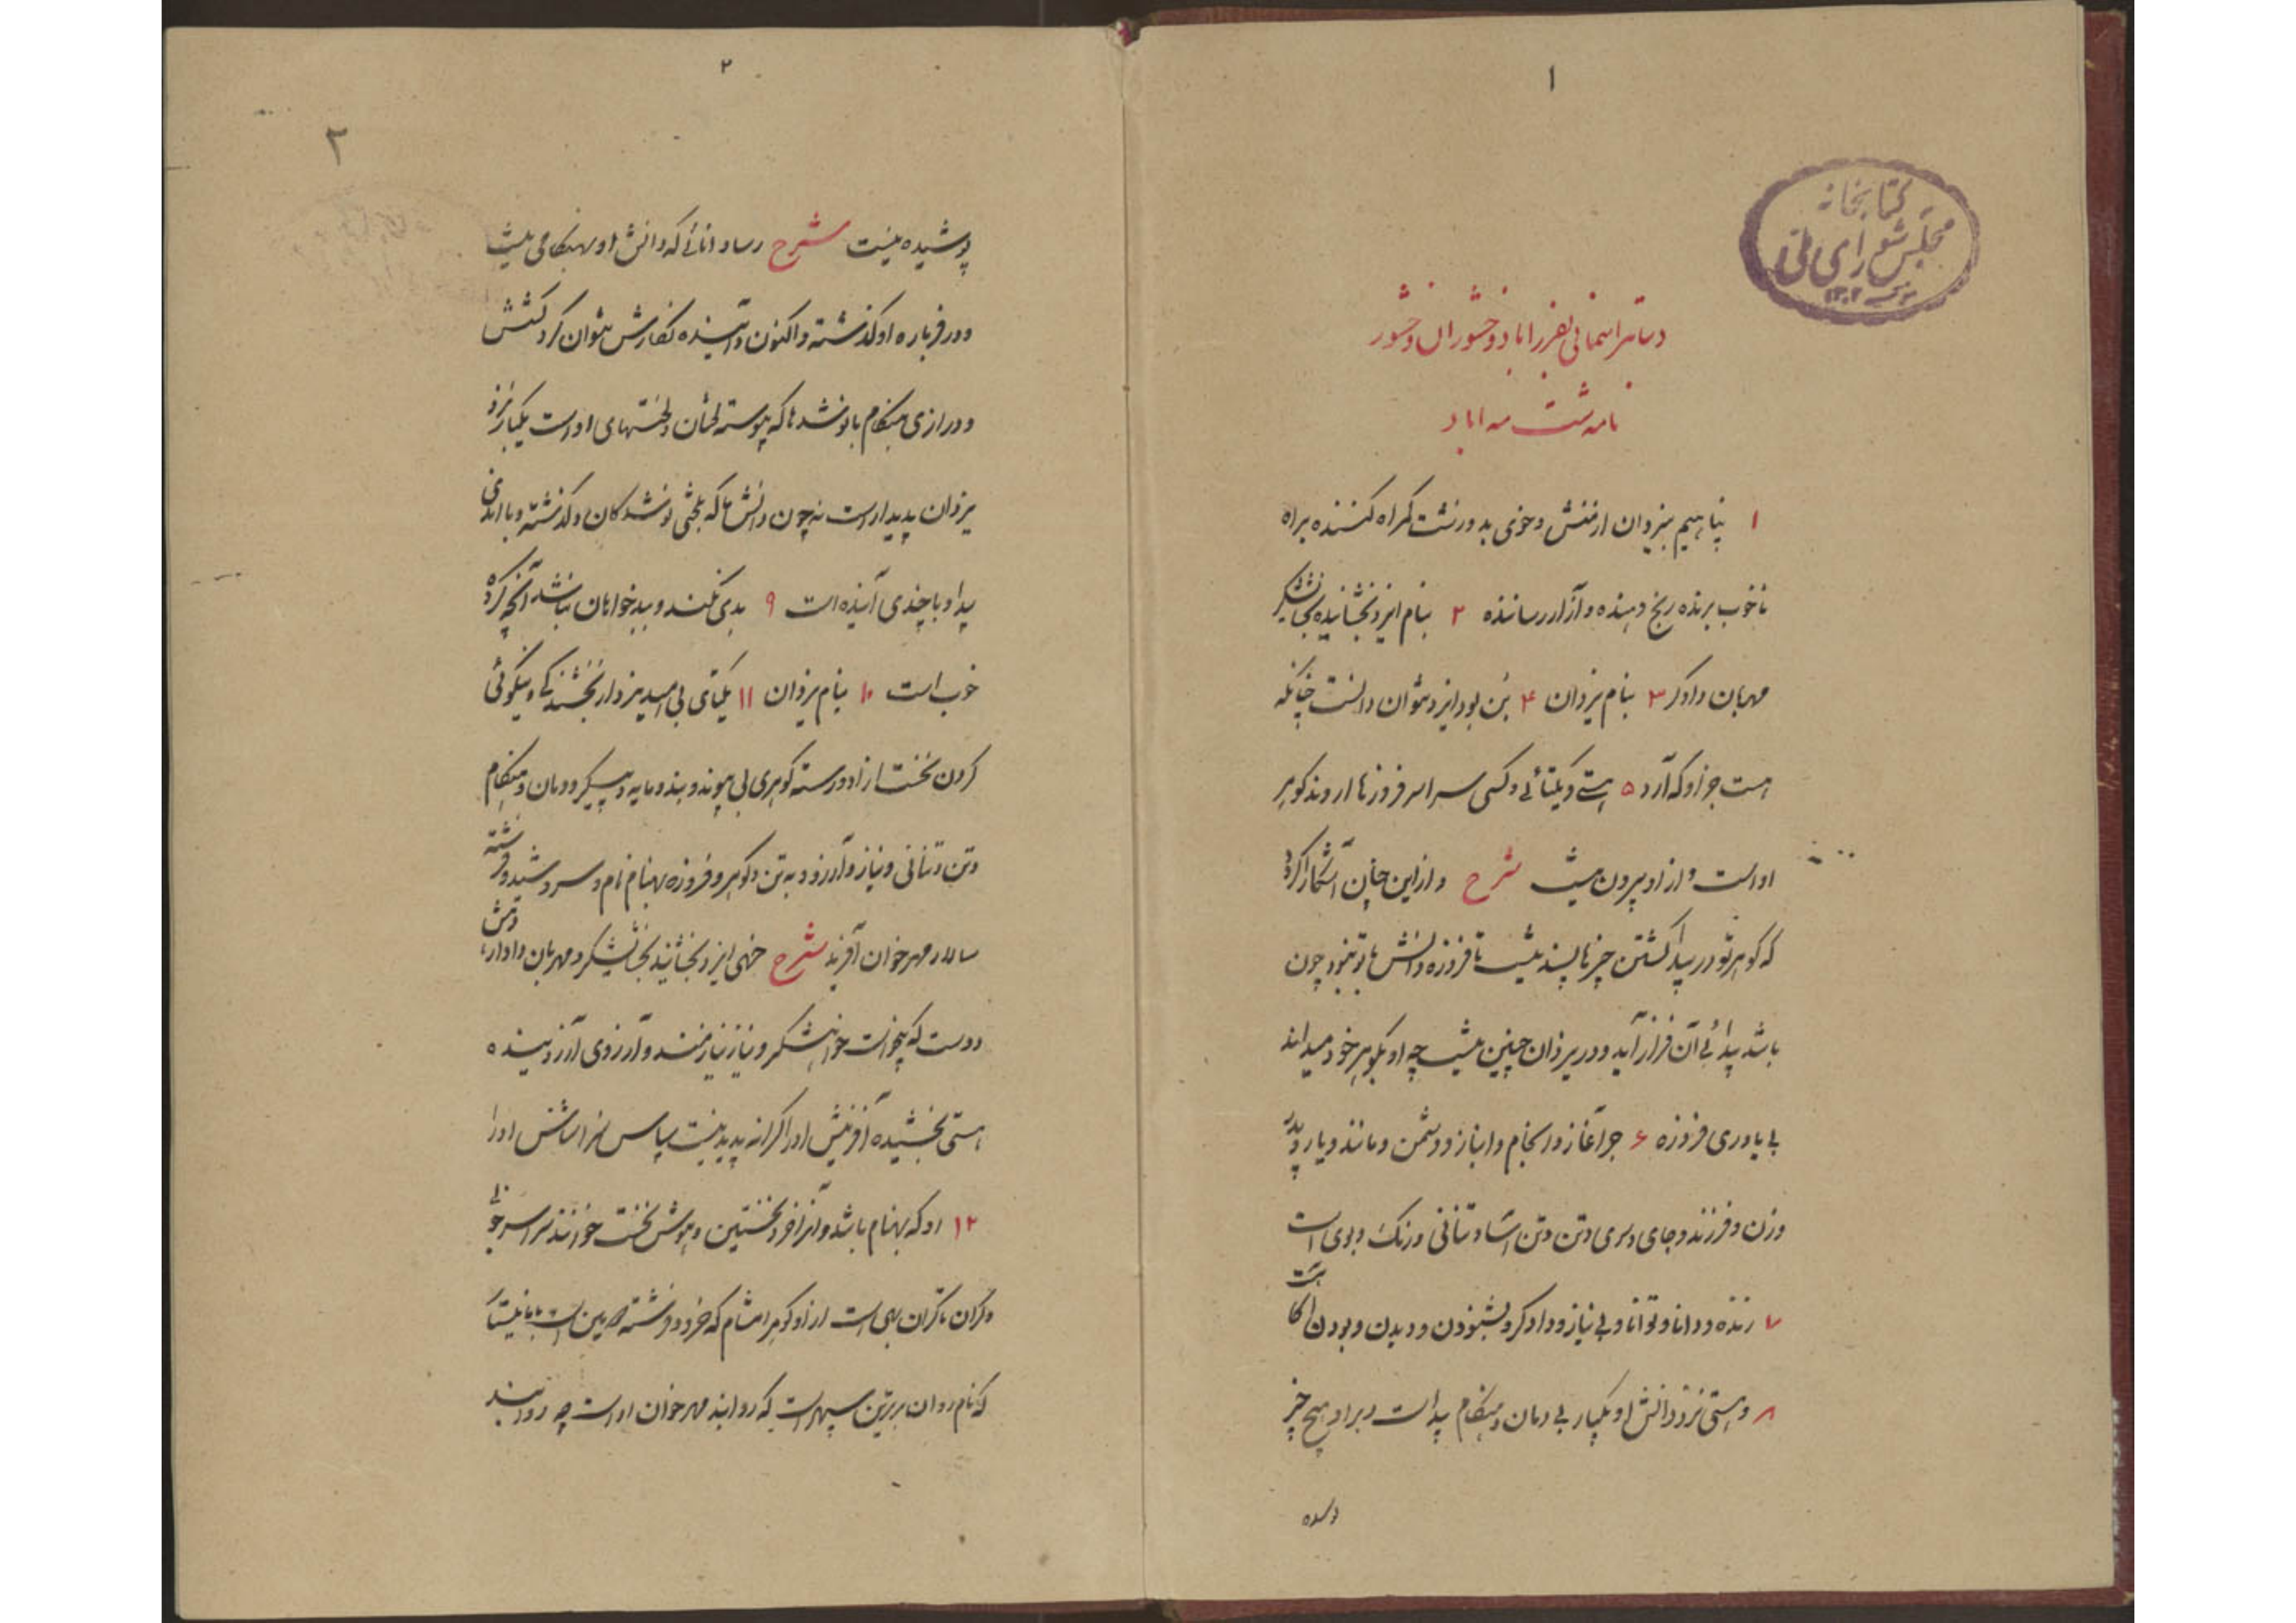 ۱
کتابخانه
مجلس شورای ملی
دساتیر اسمانی بفرزاباد وخشوران وخشور
نامه شت مه اباد
۱ پناهیم بیزدان از منش و خوی بد و زشت گمراه کننده براه
ناخوب برنده رنج دهنده و آزار رساننده ۲ بنام ایزد بخشاینده بخشایشگر
مهربان دادگر ۳ بنام یزدان ۴ بن بود ایزد نتوان دانست چنانکه
هست جز او که آرد ۵ هستی و یکتائی و کسی سراسر فروزها اروند گوهر
اواست و از او بیرون نیست شرح و از این چنان آشکارا کرد
که گوهر تو در پیدا گشتن چیزها بسنده نیست تا فروزه دانش بتو نبود چون
باشد پیدائی آن فراز آید و در یزدان چنین نیست چه او بگوهر خود میداند
بی یاوری فروزه ۶ جز آغاز و انجام و انباز و دشمن و مانند و یار و پدر
وزن و فرزند و جای و سوی و تن و تن آسا و تنانی و رنگ و بوی است
۷ زنده و دانا و توانا و بی نیاز و دادگر و بشنودن و دیدن و بودن آگاه است
۸ و هستی نزد دانش او یکبار بی زمان و هنگام پیداست و بر او هیچ چیز
پوشیده
۲
۲
پوشیده نیست شرح رسا دانائی که دانش او بهنگامی نیست
و در فرباره او گذشته و اکنون و آینده نگارش نتوان کرد کشش
و درازی هنگام با نو شدها که پیوسته لختان و لختهای اواست یکبار نزد
یزدان پدیدار است نه چون دانش ما که بلختی نو شدگان و گذشته و با اندی
پیدا و با چندی آینده است ۹ بدی نکند و بدخواهان نباشد آنچه کرده
خوب است ۱۰ بنام یزدان ۱۱ یکتای بی امید نزد از بخشندگی و نیکوئی
کردن نخست آزاد و رسته گوهری بی پیوند و بند و مایه و پیکر و زمان و هنگام
وتن و تنانی و نیاز و آرزو و به تن و گوهر و فروزه بهنام نام و سروشبد و فرشته
سالار مهر خوان آفرید شرح خهی ایزد بخشاینده بخشایشگر و مهربان و دادار
دوست که نخواست خواهشگر و نیاز نیازمند و آرزوی آرزومنده
هستی بخشیده آفرینش او را کرانه پدید نیست سپاس سزا ستایش او را
۱۲ او که بهنام باشد و آنرا خرد نخستین و هوش نخست خوانند سراسر خوبی
و کران تا کران بهی است از او گوهر امشام که خرد و فرشته دومین است با مانیستار
که نام روان برترین سپهر است که روانبد مهر خوان اواست چه روانبد